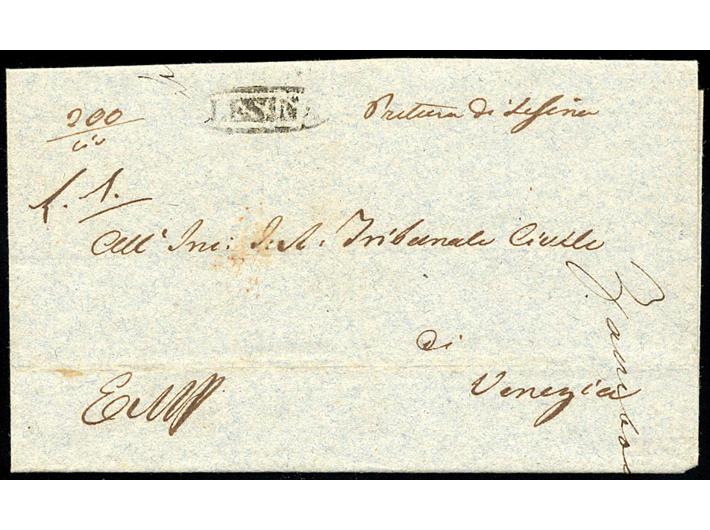 200
LESINA
Pretura di Lesina
1.
All' Inc: I: R. Tribunale Civile
di
Venezia